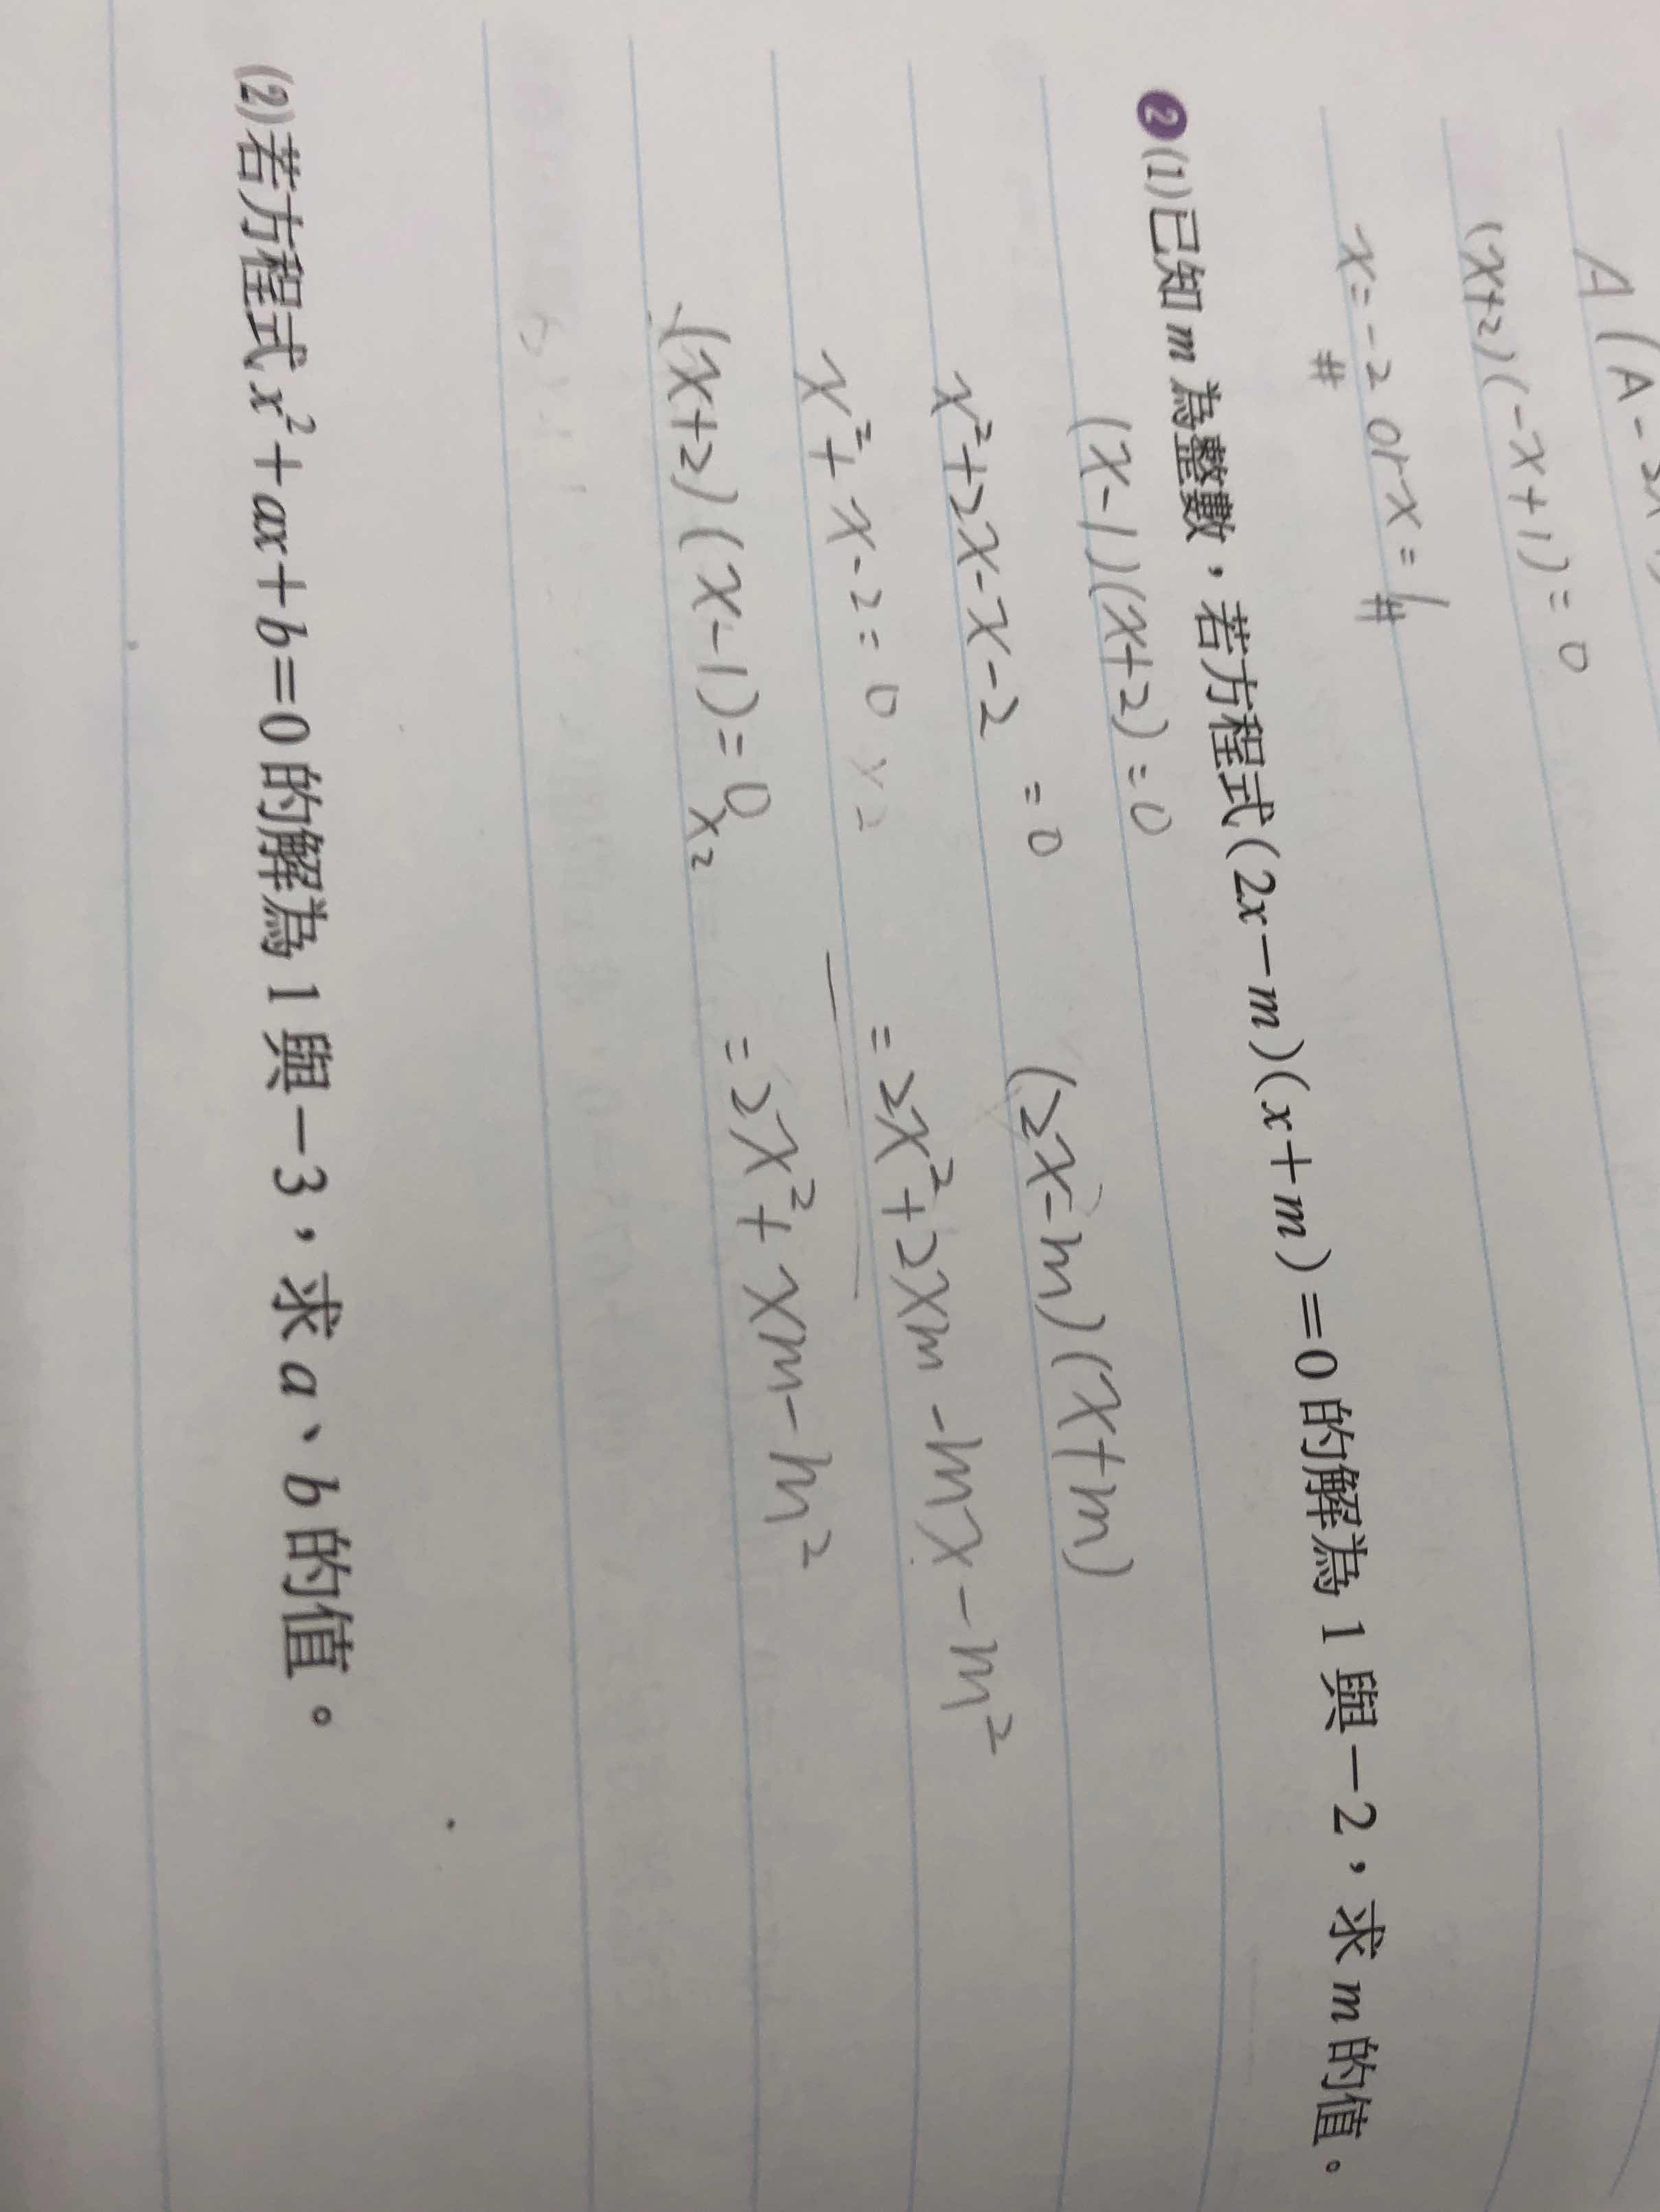 A(A-3x
(x+2)(-x+1)=0
x=-2 or x=1
# #
❷(1)已知 m 為整數，若方程式(2x－m)(x＋m)＝0 的解為 1 與－2，求 m 的值。
(x-1)(x+2)=0
(2x-m)(x+m)
x²+2x-x-2 =0
=2x²+2xm-mx-m²
x²+x-2=0
=2x²+xm-m²
(x+2)(x-1)=0
x2
(2)若方程式 x²＋ax＋b＝0 的解為 1 與－3，求 a、b 的值。